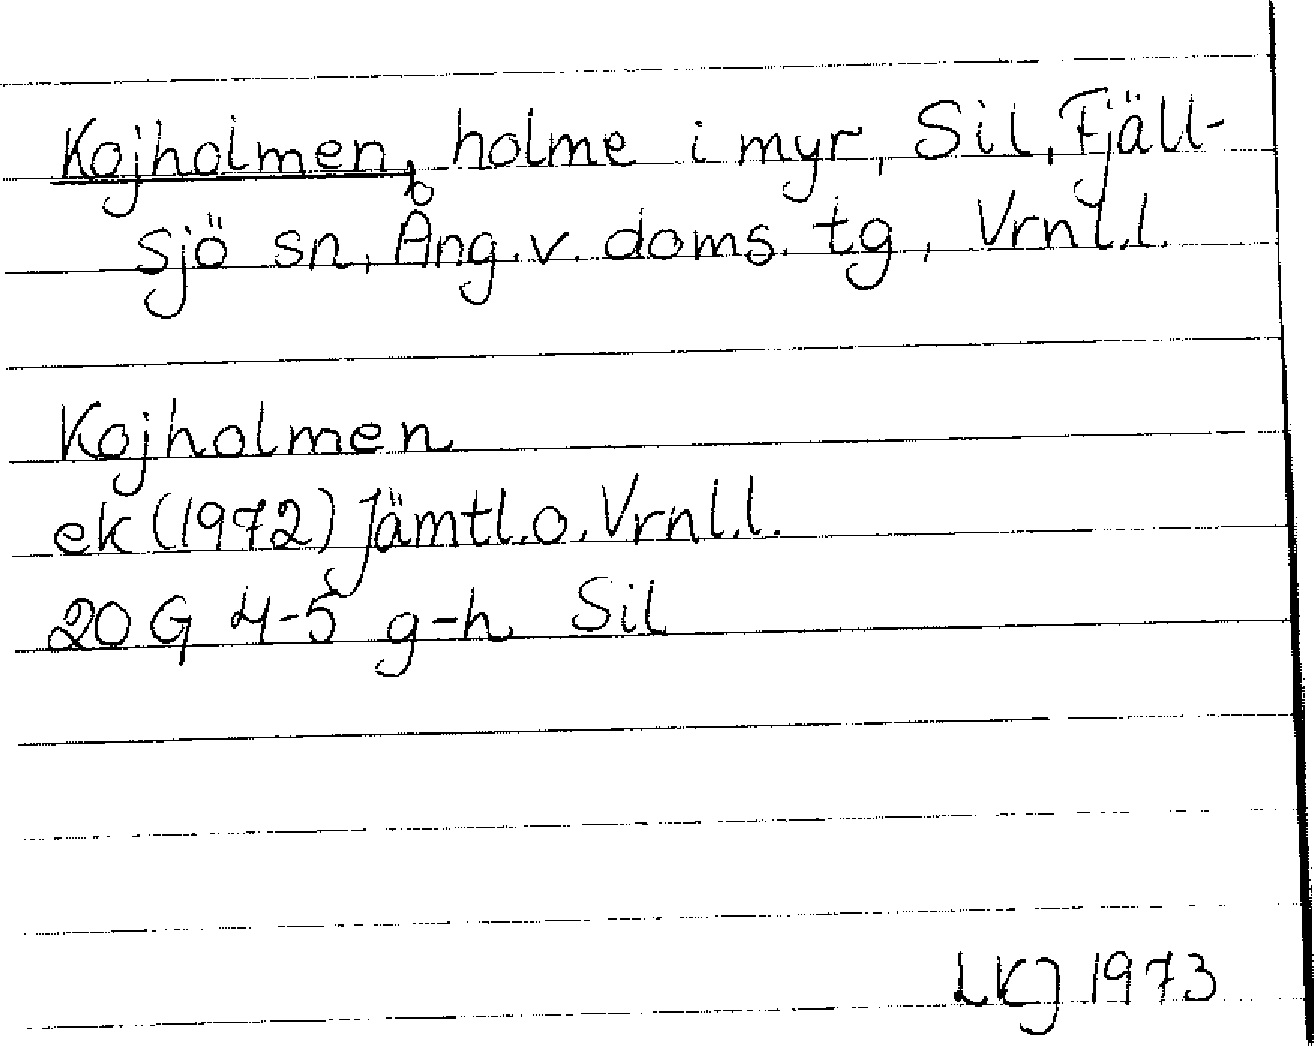 Kojholmen, holme i myr, Sil, Fjäll-
sjö sn, Ång.v. doms. tg, Vrnl.l.
Kojholmen
ek (1972) Jämtl.o.Vrnl.l.
20 G 4-5 g-h Sil
LKJ 1973